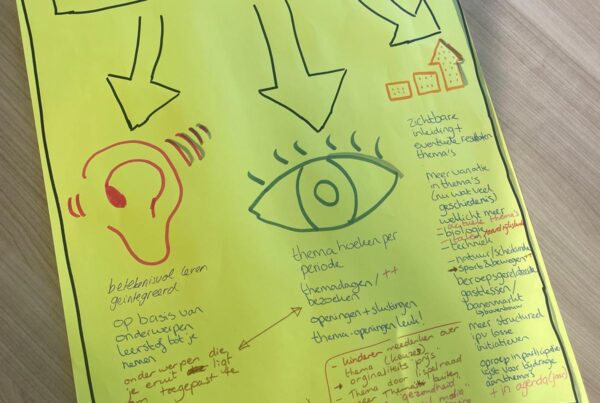 betekenisvol leren
geïntegreerd
op basis van
onderwerpen
leerstof tot je
nemen
onderwerpen die
je eruit ligt
toegepast
thema hoeken per
periode
themadagen / ++
bezoeken
openingen + sluitingen
thema-openingen leuk!
- kinderen meedenken over
thema (keuzes)
originaliteits prijs"
- Thema door
Thema's buiten
"gezondheid
media
zichtbare
inleiding +
eventuele resultaten
thema's
meer variatie
in thema's
(nu wat veel
geschiedenis)
wellicht meer
- actuele thema's
- biologie
- techniek
- natuur/scheikunde
sport & bewegen ++
beroepsgerelateerde
gastlessen /
banenmarkt
bovenbouw
meer structureel
ipv losse
initiatieven
oproep in participatie
lijst voor bijdrage
aan thema's
+ in agenda (jaar)